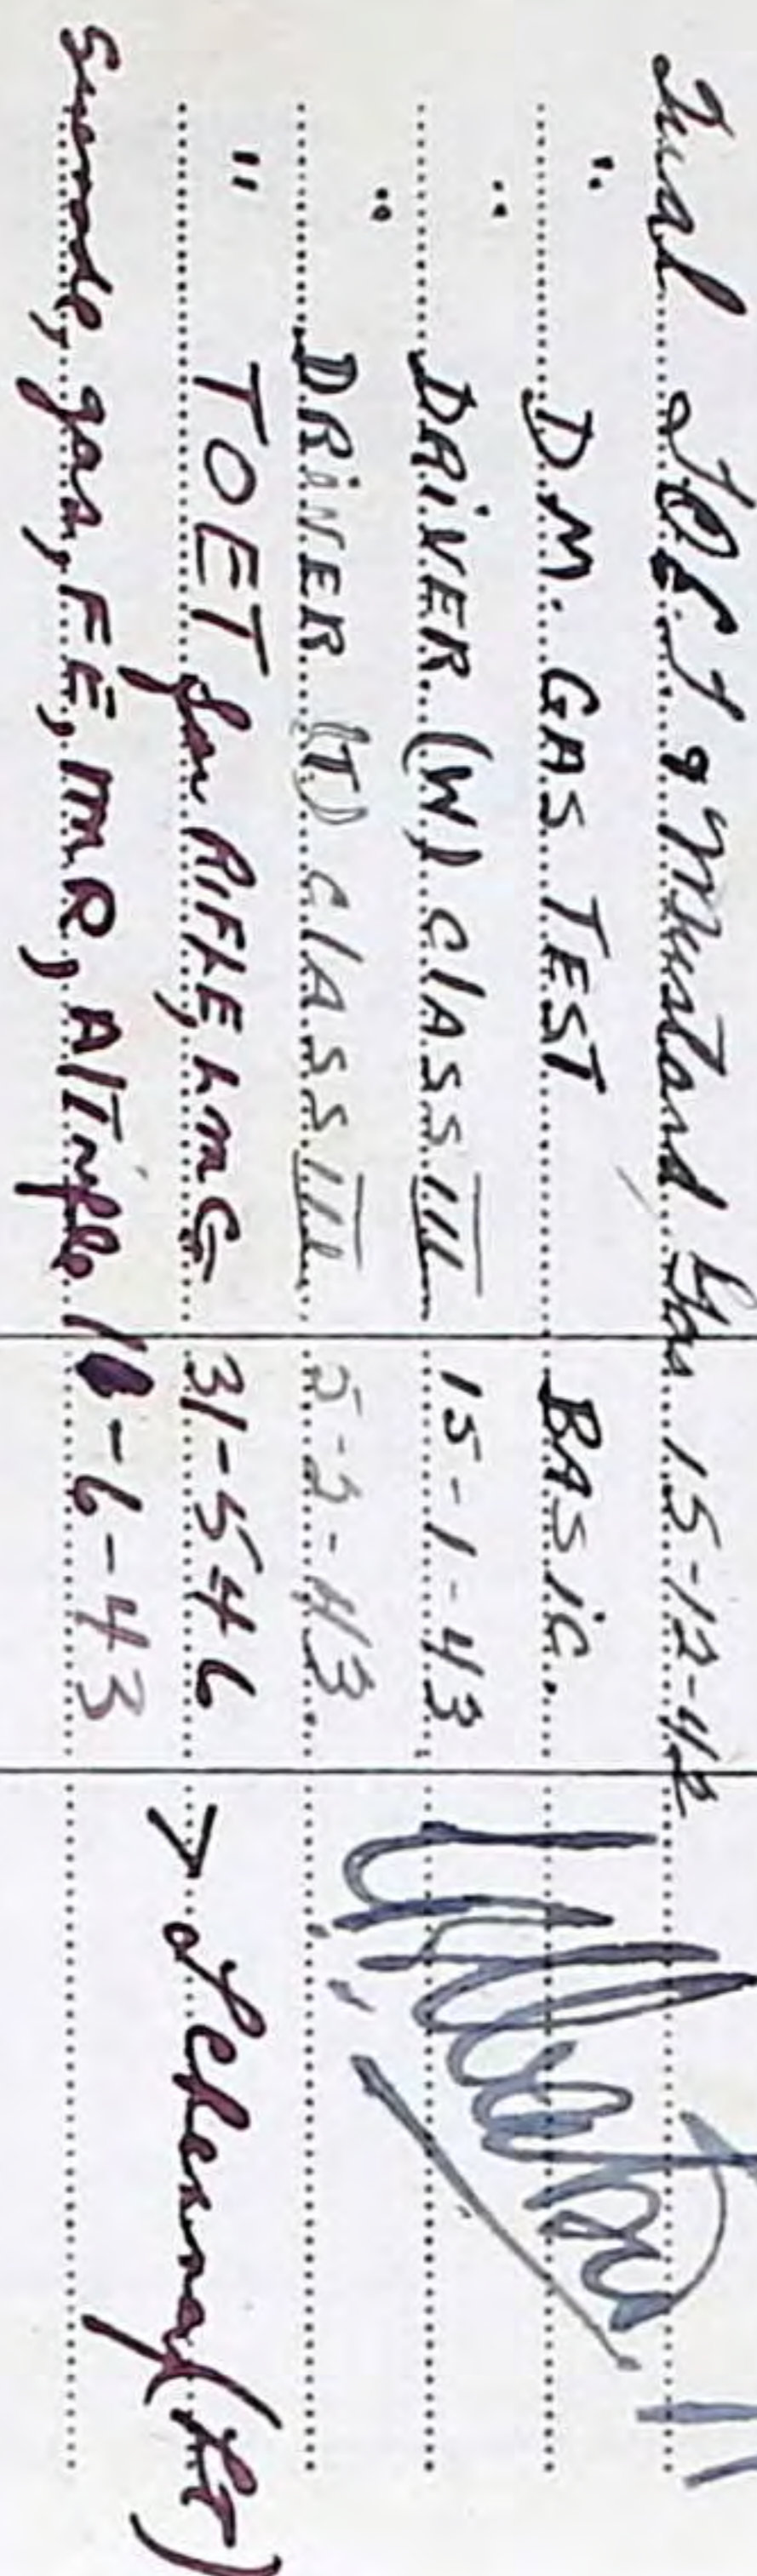 Qual T.O.E.T. & Mustard Gas 15-12-42
" D.M. GAS TEST BASIC.
" DRIVER (W) CLASS III 15-1-43
" DRIVER (T) CLASS III 5-2-43
" TOET for RIFLE, LMG 31-5-46
Grenade, gas, FE, IMR, A/T rifle 16-6-43
(Lt)